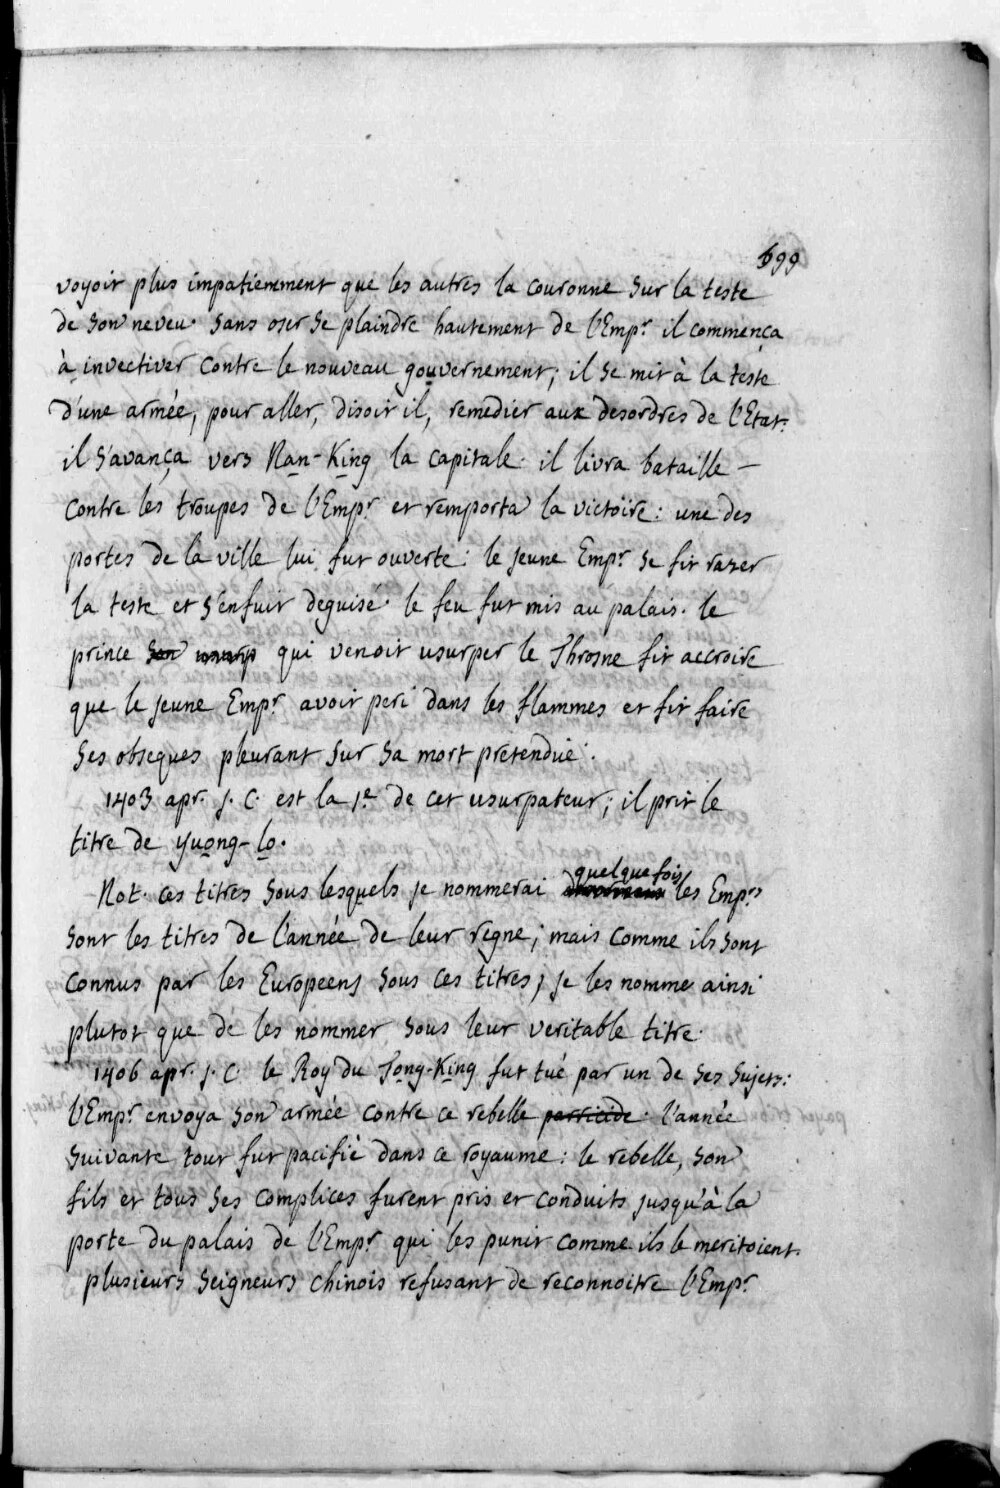 699
voyoit plus impatiemment que les autres la couronne sur la teste
de son neveu. sans oser se plaindre hautement de l'Empr. il commença
à invectiver contre le nouveau gouvernement; il se mit à la teste
d'une armée, pour aller, disoit il, remedier aux desordres de l'Etat.
il s'avança vers Nan-King la capitale. il livra bataille –
contre les troupes de l'Empr. et remporta la victoire: une des
portes de la ville lui fut ouverte: le jeune Empr. se fit razer
la teste et s'enfuit deguisé. le feu fut mis au palais. le
prince son usurp qui venoit usurper le Throsne fit accroire
que le jeune Empr. avoit peri dans les flammes et fit faire
ses obseques pleurant sur sa mort pretendüe.
1403 apr. J. C. est la 1e. de cet usurpateur; il prit le
titre de yuong-lo.
Not. ces titres sous lesquels je nommerai quelquefois les Emprs
sont les titres de l'année de leur regne; mais comme ils sont
connus par les Europeens sous ces titres, je les nomme ainsi
plutot que de les nommer sous leur veritable titre.
1406 apr. J. C. le Roy du Tong-King fut tué par un de ses sujets:
l'Empr. envoya son armée contre ce rebelle parricide. l'année
suivante tout fut pacifié dans ce royaume: le rebelle, son
fils et tous ses complices furent pris et conduits jusqu'à la
porte du palais de l'Empr. qui les punit comme ils le meritoient.
plusieurs seigneurs chinois refusant de reconnoitre l'Empr.